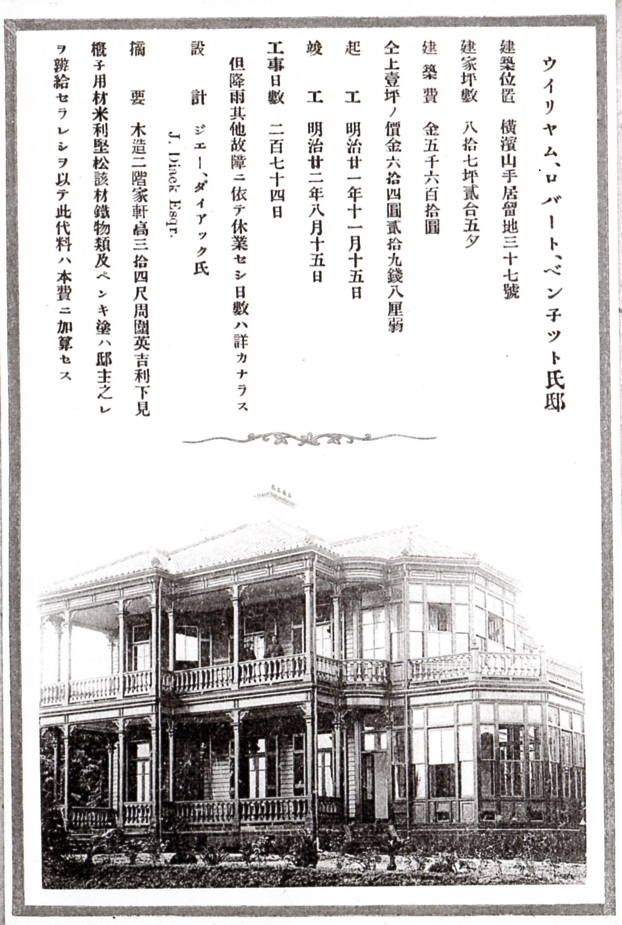 ウイリヤム、ロバート、ベン子ツト氏邸
建築位置 橫濱山手居留地三十七號
建家坪數 八拾七坪貳合五夕
建築費 金五千六百拾圓
仝上壹坪ノ價金六拾四圓貳拾九錢八厘弱
起工 明治廿一年十一月十五日
竣工 明治廿二年八月十五日
工事日數 二百七十四日
但降雨其他故障ニ依テ休業セシ日數ハ詳カナラス
設計 ジエー、ダイアック氏
J. Diack Esqr.
摘要 木造二階家軒高三拾四尺周圍英吉利下見
概子用材米利堅松該材鐵物類及ペンキ塗ハ邸主之レ
ヲ辨給セラレシヲ以テ此代料ハ本費ニ加算セス